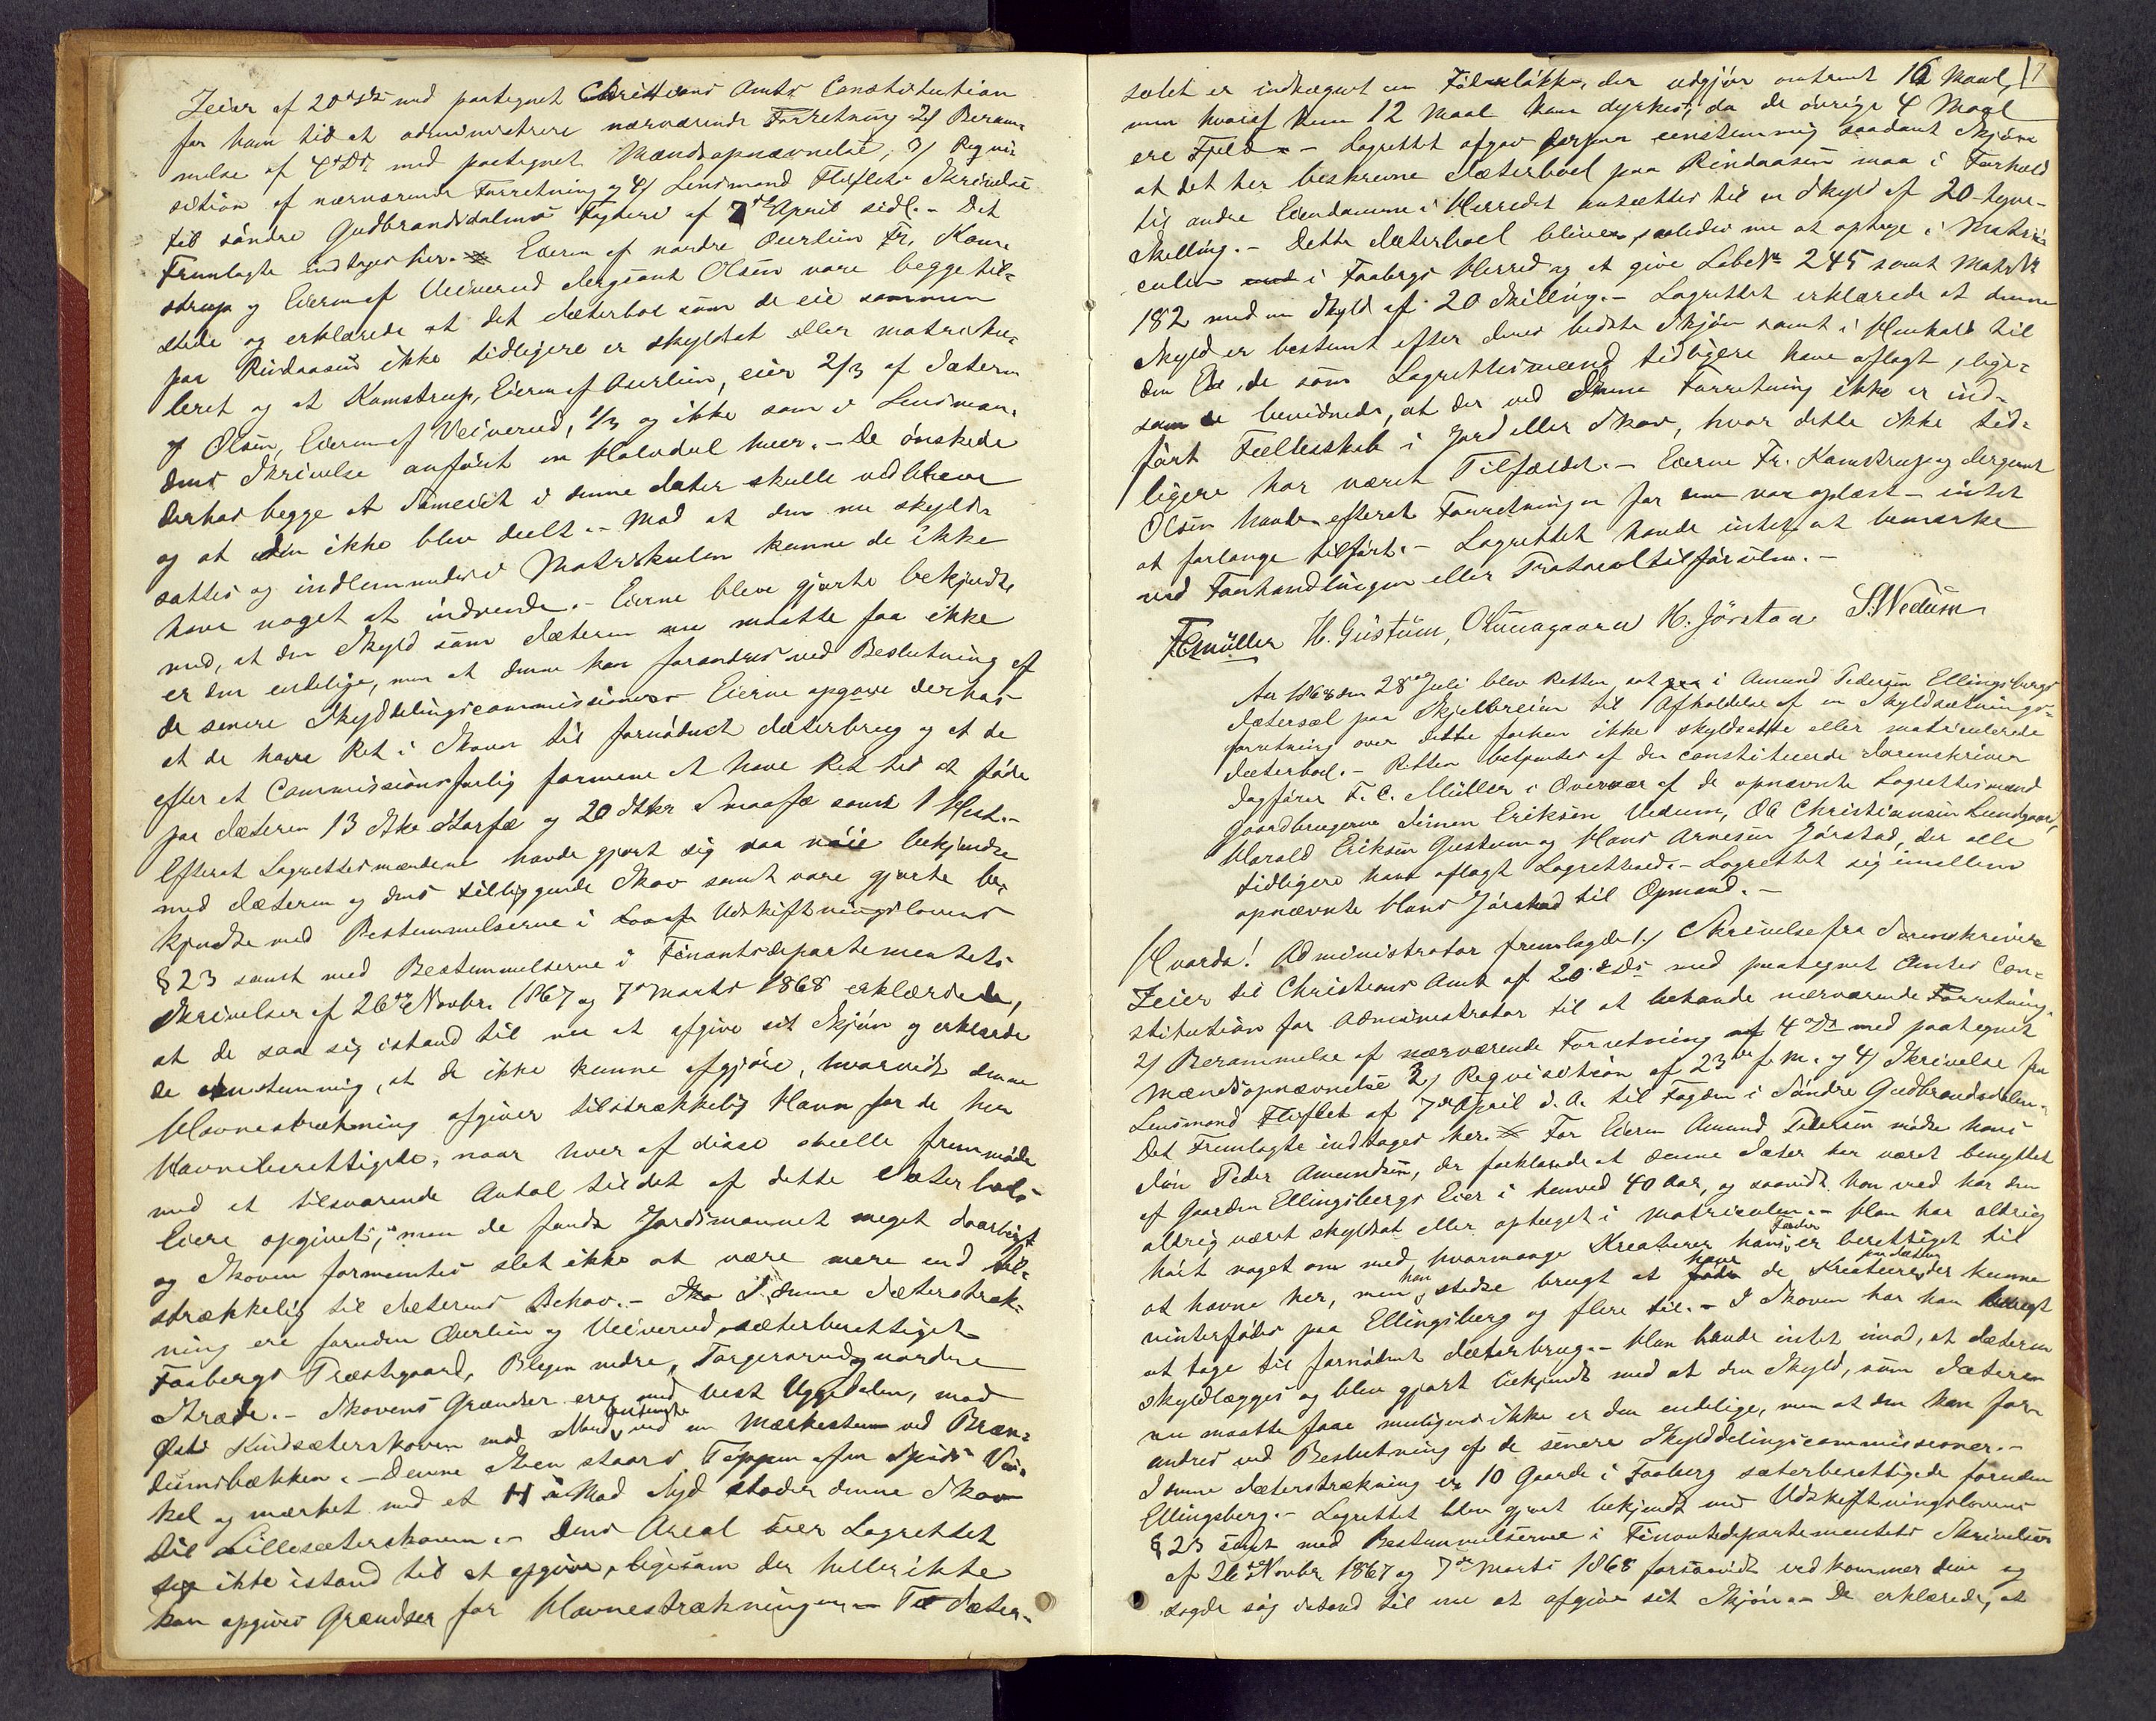 Zeier af 20de ds. med paategnet Christians Amts Constitution
for ham til at administrere nærværende Forretning 2/ Beram-
melse af 4de Ds. med paategnet Mændsopnævnelse, 3/ Reqvi-
sition af nærværende Forretning og 4/ Lensmand Fliflets Skrivelse
til søndre Gudbrandsdalens Fogderi af 7de April sidl. - Det
Fremlagte indtages her. Eieren af nordre Aurlien Fr. Kam-
strup og Eieren af Veiverud Sergeant Olsen vare begge til-
stede og erklærede at det Sæterbol som de eie sammen
paa Rindaasen ikke tidligere er skyldsat eller matriku-
leret og at Kamstrup, Eieren af Aurlien, eier 2/3 af Sæteren
og Olsen, Eieren af Veiverud, 1/3 og ikke som i Lensman-
dens Skrivelse anført en Halvdel hver. - De ønskede
derhos begge at Sameiet i denne Sæter skulle vedblive
og at den ikke blev deelt. - Mod at den nu skyld-
sattes og indlemmedes i Matrikulen kunne de ikke
have noget at indvende. - Eierne bleve gjorte bekjendte
med, at den Skyld som Sæteren nu maatte faa ikke
er den endelige, men at denne kan forandres ved Beslutning af
de senere Skylddelingscommissioner. Eierne opgave derhos
at de have Ret i Skoven til fornødent Sæterbrug og at de
efter et Commissionsforlig formene at have Ret til at føde
paa Sæteren 13 Stkr Storfæ og 20 Stkr Smaafæ samt 1 Hest. -
Efterat Lagrettesmændene havde gjort sig saa nøie bekjendte
med Sæteren og dens tilliggende Skov samt vare gjorte be-
kjendte med Bestemmelserne i Udskiftningslovens
§ 23 samt med Bestemmelserne i Finantsdepartementets
Skrivelser af 26de Novbr. 1867 og 7de Marts 1868 erklærede,
at de saa sig istand til nu at afgive sit Skjøn og erklærede
de eenstemmig, at de ikke kunne afgjøre, hvorvidt denne
Havnestrækning afgiver tilstrækkelig Havn for de her
Havneberettigede, naar hver af disse skulle fremmøde
med et tilsvarende Antal til det af dette Sæterbols
Eiere opgivet, men de fandt Jordsmonnet meget daarligt
og Skoven formentes slet ikke at være mere end til-
strækkelig til Sæterens Behov. - I denne Sæterstræk-
ning ere foruden Aurlien og Veiverud, sæterberettiget
Faabergs Præstgaard, Blegen nedre, Torgersrud og nordre
Stræde. - Skovens Grændser ere mod Vest Uggedalen, mod
Øst Kindsæterskoven mod Nord ved en Mærkesteen ved Bræn-
dumsbækken. - Denne Steen staar i Toppen af en spids Vin-
kel og mærket med et H. - Mod Syd støder denne Skov
til Lillesæterskoven. - Dens Areal seer Lagrettet
sig ikke istand til at opgive, ligesom der heller ikke
kan opgives Grændser for Havnestrækningen. - Til Sæter-
7
solet er indhegnet en Føderløkke, der udgjør omtrent 16 Maal,
men hvoraf kun 12 Maal kan dyrkes, da de øvrige 4 Maal
ere Fjeld. - Lagrettet afgav derpaa eenstemmig saadant Skjøn
at det her beskrevne Sæterboel paa Rindaasen maa i Forhold
til andre Eiendomme i Herredet ansættes til en Skyld af 20 - tyve -
Skilling. - Dette Sæterboel bliver saaledes nu at optage i Matri-
culen i Faabergs Herred og at give Løbe No 245 samt Matr. No
182 med en Skyld af 20 Skilling. - Lagrettet erklærede at denne
Skyld er bestemt efter deres bedste Skjøn samt i Henhold til
den Ed, de som Lagrettesmænd tidligere have aflagt, lige-
som de bevidnede, at der ved denne Forretning ikke er ind-
ført Fællesskab i Jord eller Skov, hvor dette ikke tid-
ligere har været Tilfældet. - Eierne Fr. Kamstrup og Sergeant
Olsen havde efterat Forretningen for dem var oplæst - intet
at forlange tilført. - Lagrettet havde intet at bemærke
ved Forhandlingen eller Protocoltilførselen. -
FCMüller H. Gustum, OLunagaard H. Jørstad S. Vedum
Aar 1868 den 28de Juli blev Retten sat i Amund Pedersen Ellingsbergs
Sætersæl paa Skjelbreien til Afholdelse af en Skyldsætnings-
forretning over dette forhen ikke skyldsatte eller matriculerede
Sæterboel. - Retten betjentes af den constituerede Sorenskriver
Sagfører F. C. Müller i Overvær af de opnævnte Lagrettesmænd
Gaardbrugerne Simen Eriksen Vedum, Ole Christiansen Lundgaard,
Harald Eriksen Gustum og Hans Arnesen Jørstad, der alle
tidligere have aflagt Lagretteed. - Lagrettet sig imellem
opnævnte Hans Jørstad til Opmand. -
Hvorda! Administrator fremlagde 1/ Skrivelse fra Sorenskriver
Zeier til Christians Amt af 20de Ds med paategnet Amtets Con-
stitution for Administrator til at behandle nærværende Forretning
2/ Berammelse af nærværende Forretning af 4de Ds med paategnet
Mændsopnævnelse 3/ Reqvisition af 23de f. M. og 4/ Skrivelse fra
Lensmand Fliflet af 7de April d. A. til Fogden i Søndre Gudbrandsdalen. -
Det Fremlagte indtages her. For Eieren Amund Pedersen mødte hans
Søn Peder Amundsen, der forklarede at denne Sæter har været benyttet
af Gaarden Ellingsbergs Eier i henved 40 Aar, og saavidt han ved har den
aldrig været skyldsat eller optaget i Matriculen. - Han har aldrig
hørt noget om med hvormange Kreaturer hans Fader er berettiget til
at havne her, men han stedse brugt at have de Kreaturer paa Sæteren der kunne
vinterfødes paa Ellingsberg og flere til. - I Skoven har han brugt
at tage til fornødent Sæterbrug. - Han havde intet imod, at Sæteren
skyldlægges og blev gjort bekjendt med at den Skyld, som Sæteren
nu maatte faae muligens ikke er den endelige, men at den kan for-
andres ved Beslutning af de senere Skylddelingscommissioner. -
I denne Sæterstrækning er 10 Gaarde i Faaberg sæterberettigede foruden
Ellingsberg. - Lagrettet blev gjort bekjendt med Udskiftningslovens
§ 23 samt med Bestemmelserne i Finantsdepartementets Skrivelser
af 26de Novbr. 1867 og 7de Marts 1868 forsaavidt vedkommer dem og
sagde sig istand til nu at afgive sit Skjøn. - De erklærede, at